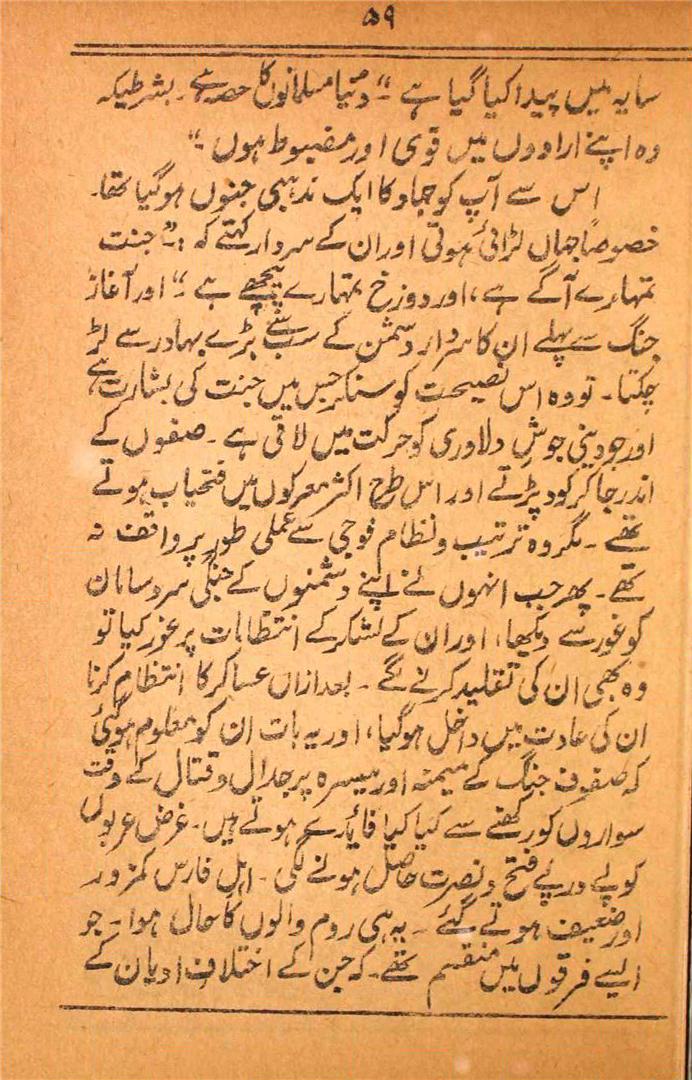 ۵۹
سایہ میں پیدا کیا گیا ہے۔“ دنیا مسلمانوں کا حصہ ہے۔ بشرطیکہ
وہ اپنے ارادوں میں قوی اور مضبوط ہوں۔“
اس سے آپ کو جہاد کا ایک مذہبی جنوں ہو گیا تھا۔
خصوصاً جہاں لڑائی ہوتی اور ان کے سردار کہتے کہ :۔”جنت
تمہارے آگے ہے، اور دوزخ تمہارے پیچھے ہے۔“ اور آغاز
جنگ سے پہلے ان کا سردار دشمن کے سب سے بڑے بہادر سے لڑ
چکتا۔ تو وہ اس نصیحت کو سنکر جس میں جنت کی بشارت ہے
اور جو دینی جوشِ دلاوری کو حرکت میں لاتی ہے۔ صفوں کے
اندر جا کر کود پڑتے اور اس طرح اکثر معرکوں میں فتحیاب ہوتے
تھے۔ مگر وہ ترتیب و نظام فوجی سے عملی طور پر واقف نہ
تھے۔ پھر جب انہوں نے اپنے دشمنوں کے جنگی سروسامان
کو غور سے دیکھا، اور ان کے لشکر کے انتظامات پر غور کیا تو
وہ بھی ان کی تقلید کرنے لگے۔ بعد ازاں عساکر کا انتظام کرنا
ان کی عادت میں داخل ہو گیا، اور یہ بات ان کو معلوم ہو گئی
کہ صفوفِ جنگ کے میمنہ اور میسرہ پر جدال و قتال کے وقت
سواروں کو رکھنے سے کیا کیا فایدے ہوتے ہیں۔ غرض عربوں
کو پے در پے فتح و نصرت حاصل ہونے لگی۔ اہلِ فارس کمزور
اور ضعیف ہوتے گئے۔ یہ ہی روم والوں کا حال ہوا۔ جو
ایسے فرقوں میں منقسم تھے۔ کہ جن کے اختلافِ ادیان کے